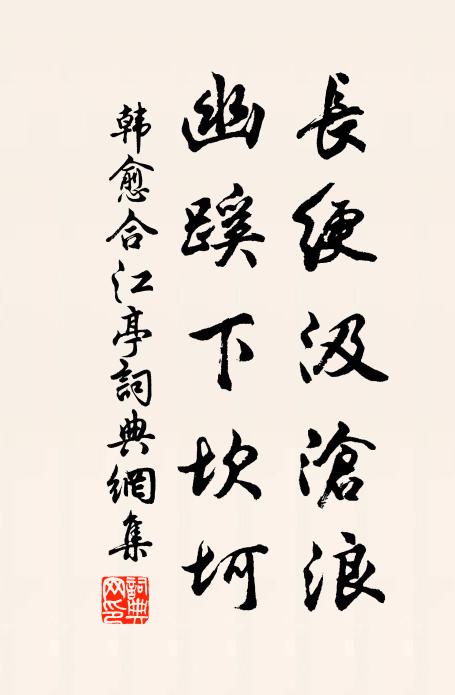 長綆汲滄浪
幽蹊下坎坷
韩愈合江亭詞典網集
詞典网印